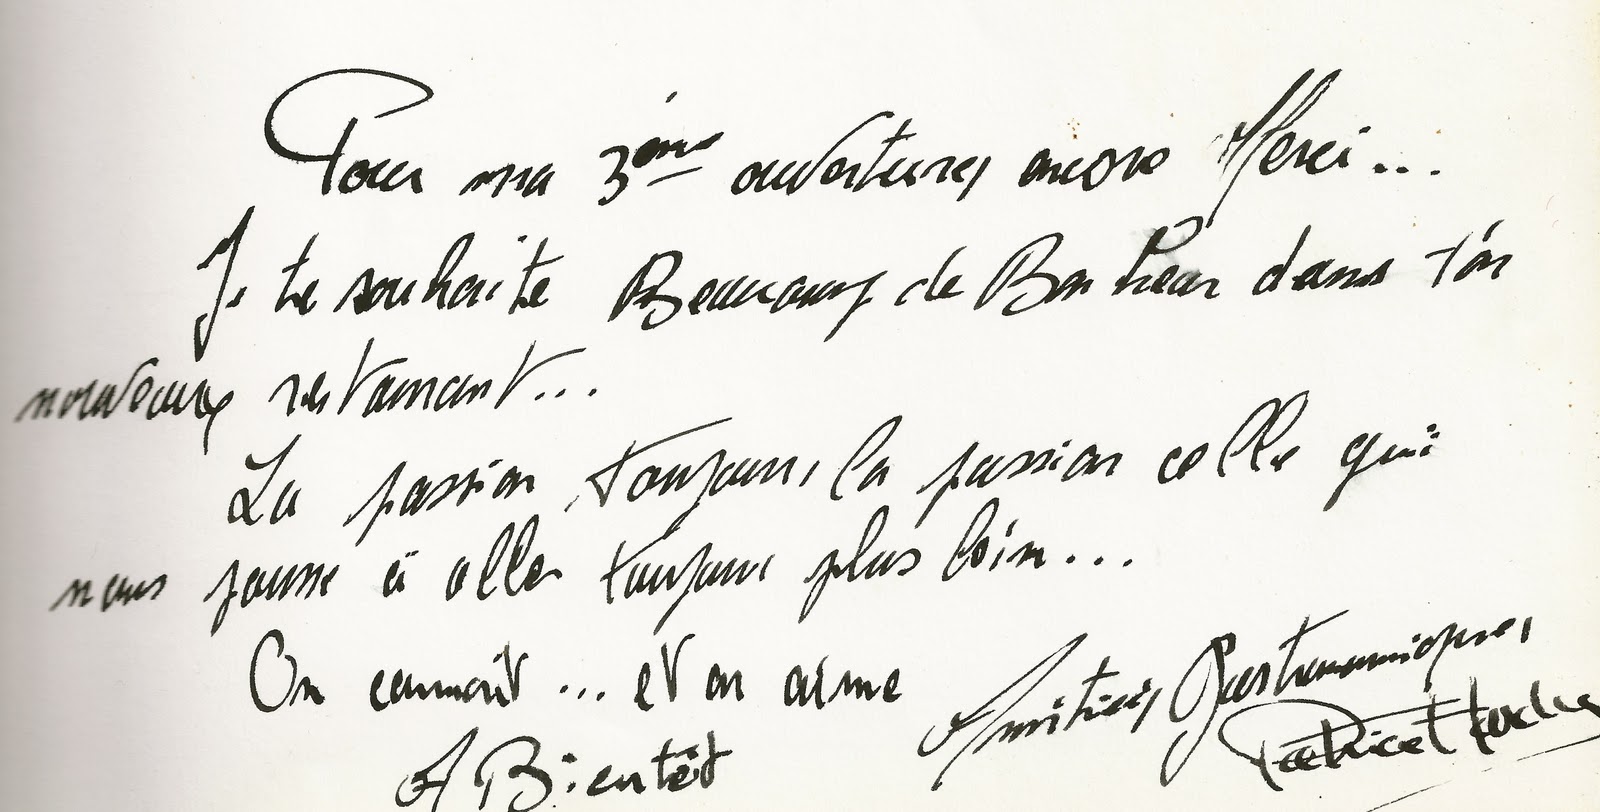 Pour ma 3ème ouverture, encore Merci...
Je te souhaite Beaucoup de Bonheur dans ton
nouveaux restaurant...
La passion toujours, la passion celle qui
nous pousse à aller toujours plus loin...
On connait ... et on aime
Amitiés Gastronomiques
A Bientôt
Patrice